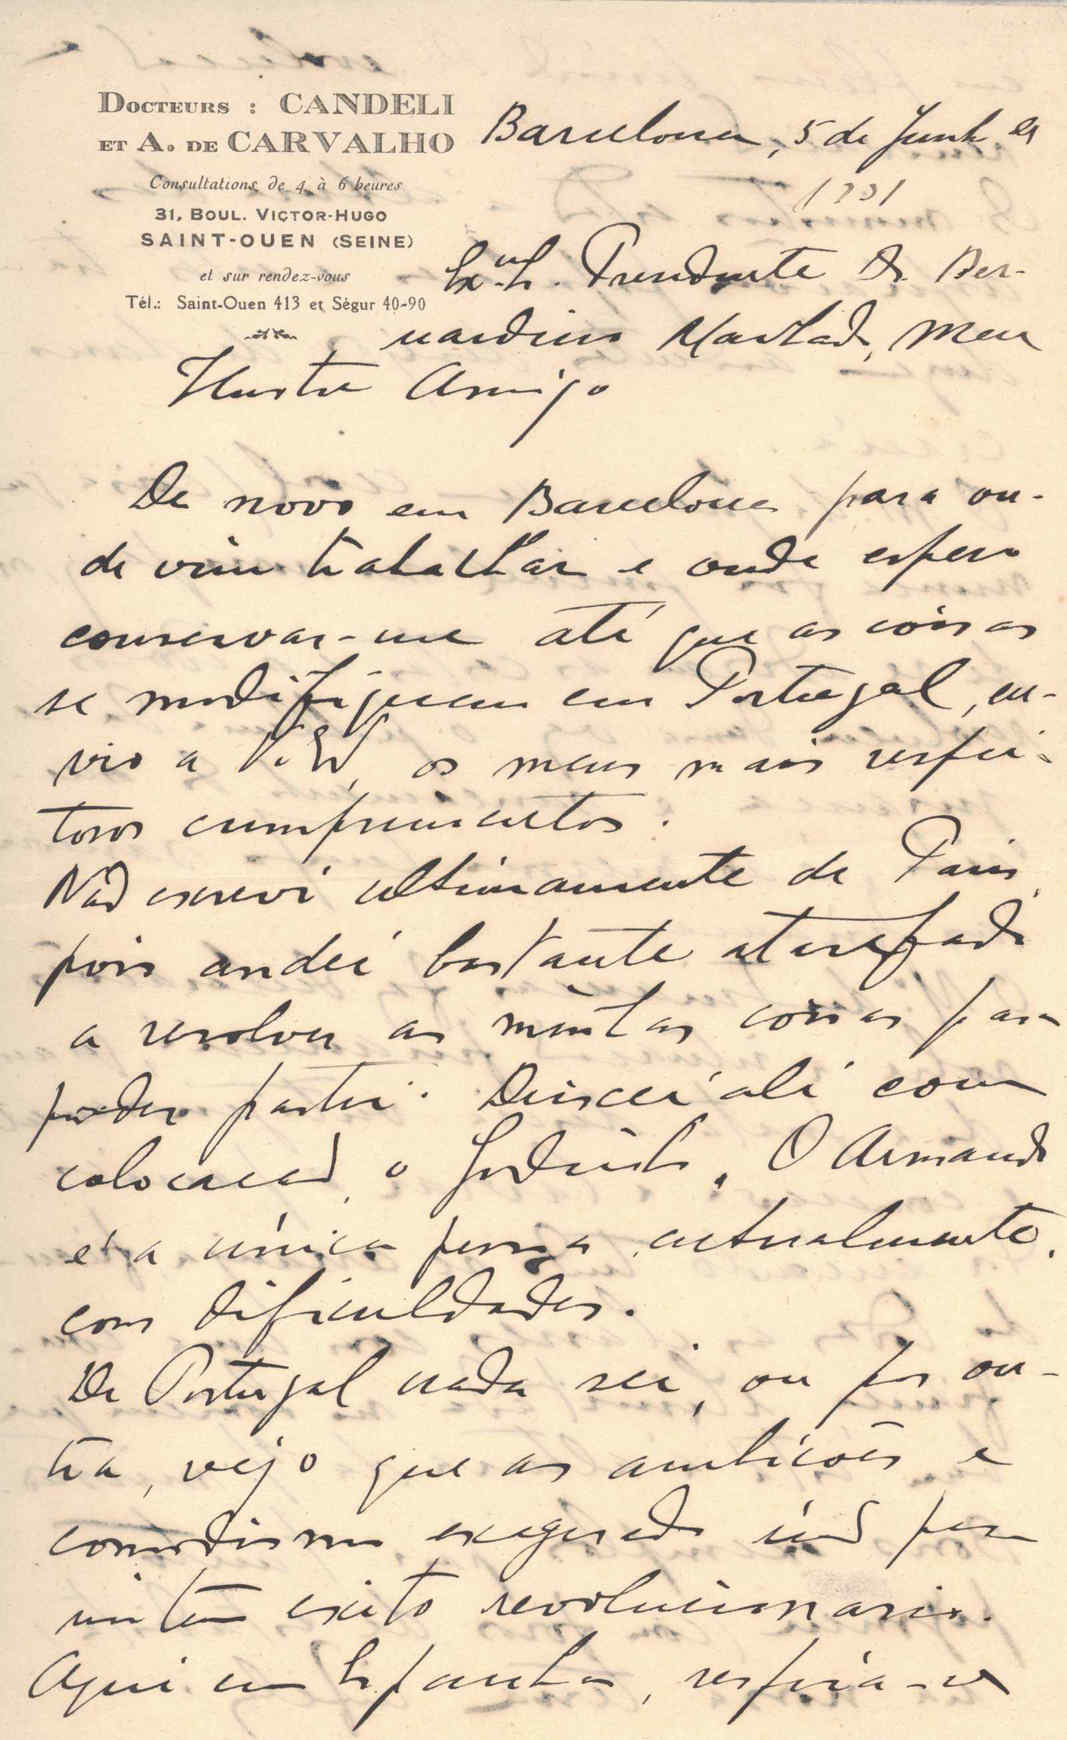 DOCTEURS : CANDELI
ET A. DE CARVALHO
Consultations de 4 à 6 heures
31, BOUL. VICTOR-HUGO
SAINT-OUEN (SEINE)
et sur rendez-vous
Tél.: Saint-Ouen 413 et Ségur 40-90
Barcelona, 5 de Junho de
1931
Exmo. Sr. Presidente Dr. Ber-
nardino Machado, Meu
Ilustre Amigo
De novo em Barcelona para on-
de vim trabalhar e onde espero
conservar-me até que as coisas
se modifiquem em Portugal, en-
vio a V. Exa. os meus mais respei-
tosos cumprimentos.
Não escrevi ultimamente de Paris,
pois andei bastante atarefado
a resolver as minhas coisas para
poder partir. Deixei ali com
colocação, o Godinho. O Armando
é a única pessoa, actualmente,
com dificuldades.
De Portugal nada sei, ou por ou-
tra, vejo que as ambicões e
comodismo exagerado não per-
mitem exito revolucionario.
Aqui em Espanha, respira-se